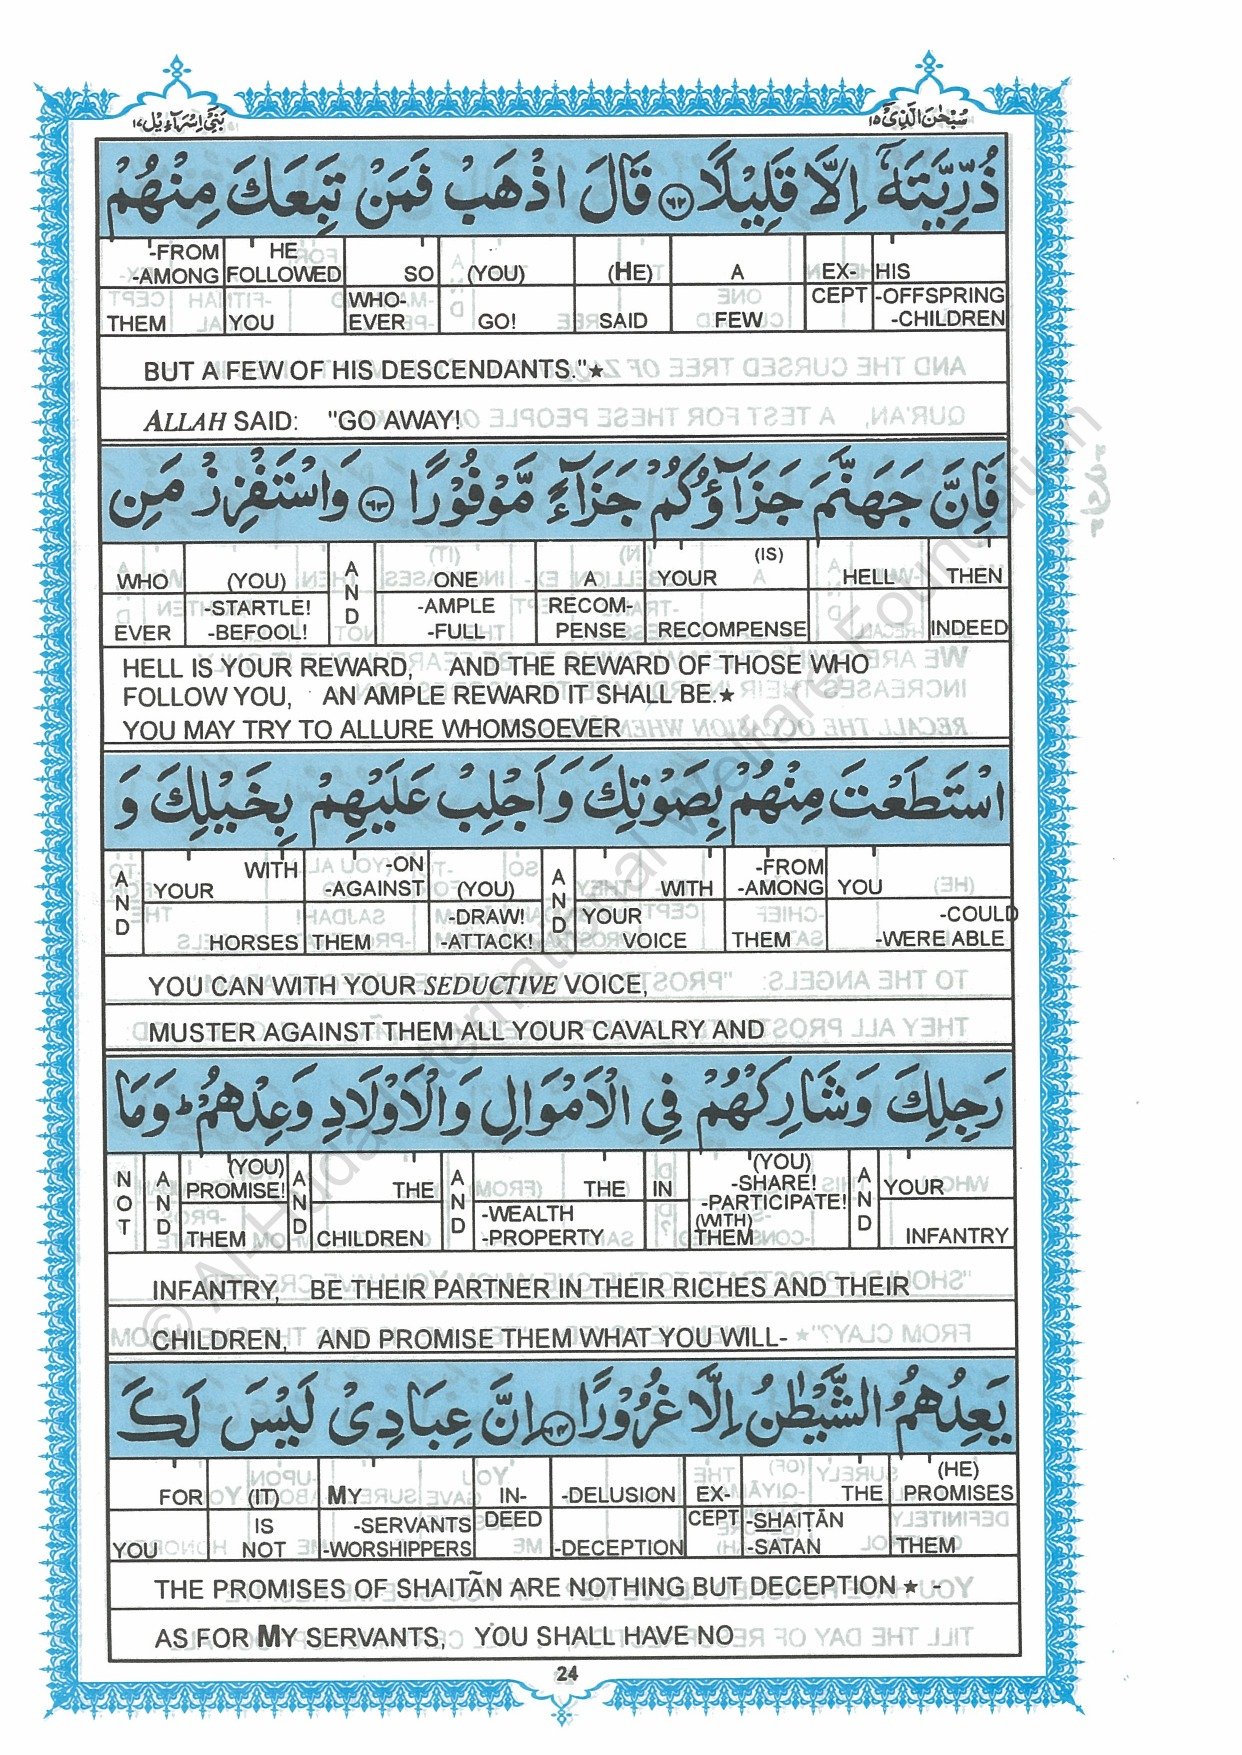 سُبْحٰنَ الَّذِىْٓ ١٥
بَنِىْٓ اِسْرَآءِيْل ١٧
ذُرِّيَّتَهٗٓ اِلَّا قَلِيْلًا ﴿٦٢﴾ قَالَ اذْهَبْ فَمَنْ تَبِعَكَ مِنْهُمْ
-FROM HE
-AMONG FOLLOWED SO (YOU) (HE) A EX- HIS
THEM YOU WHO-EVER GO! SAID FEW CEPT -OFFSPRING -CHILDREN
BUT A FEW OF HIS DESCENDANTS."★
ALLAH SAID: "GO AWAY!
فَاِنَّ جَهَنَّمَ جَزَآؤُكُمْ جَزَآءً مَّوْفُوْرًا ﴿٦٣﴾ وَاسْتَفْزِزْ مَنِ
WHO (YOU) AND ONE A YOUR (IS) HELL THEN
EVER -STARTLE! -BEFOOL! -AMPLE -FULL RECOM-PENSE RECOMPENSE INDEED
HELL IS YOUR REWARD, AND THE REWARD OF THOSE WHO
FOLLOW YOU, AN AMPLE REWARD IT SHALL BE.★
YOU MAY TRY TO ALLURE WHOMSOEVER
اسْتَطَعْتَ مِنْهُمْ بِصَوْتِكَ وَاَجْلِبْ عَلَيْهِمْ بِخَيْلِكَ وَ
AND YOUR WITH -ON -AGAINST (YOU) AND WITH -FROM -AMONG YOU
HORSES THEM -DRAW! -ATTACK! YOUR VOICE THEM -COULD -WERE ABLE
YOU CAN WITH YOUR SEDUCTIVE VOICE,
MUSTER AGAINST THEM ALL YOUR CAVALRY AND
رَجِلِكَ وَشَارِكْهُمْ فِى الْاَمْوَالِ وَالْاَوْلَادِ وَعِدْهُمْ ؕ وَمَا
NOT AND (YOU) PROMISE! AND THE AND THE IN (YOU) -SHARE! -PARTICIPATE! AND YOUR
THEM CHILDREN -WEALTH -PROPERTY (WITH) THEM INFANTRY
INFANTRY, BE THEIR PARTNER IN THEIR RICHES AND THEIR
CHILDREN, AND PROMISE THEM WHAT YOU WILL-
يَعِدُهُمُ الشَّيْطٰنُ اِلَّا غُرُوْرًا ﴿٦٤﴾ اِنَّ عِبَادِىْ لَيْسَ لَكَ
FOR (IT) MY IN- -DELUSION EX- THE (HE) PROMISES
YOU IS NOT -SERVANTS -WORSHIPPERS DEED -DECEPTION CEPT -SHAIṬĀN -SATAN THEM
THE PROMISES OF SHAITÃN ARE NOTHING BUT DECEPTION ★ -
AS FOR MY SERVANTS, YOU SHALL HAVE NO
24
© Al-Huda International Welfare Foundation